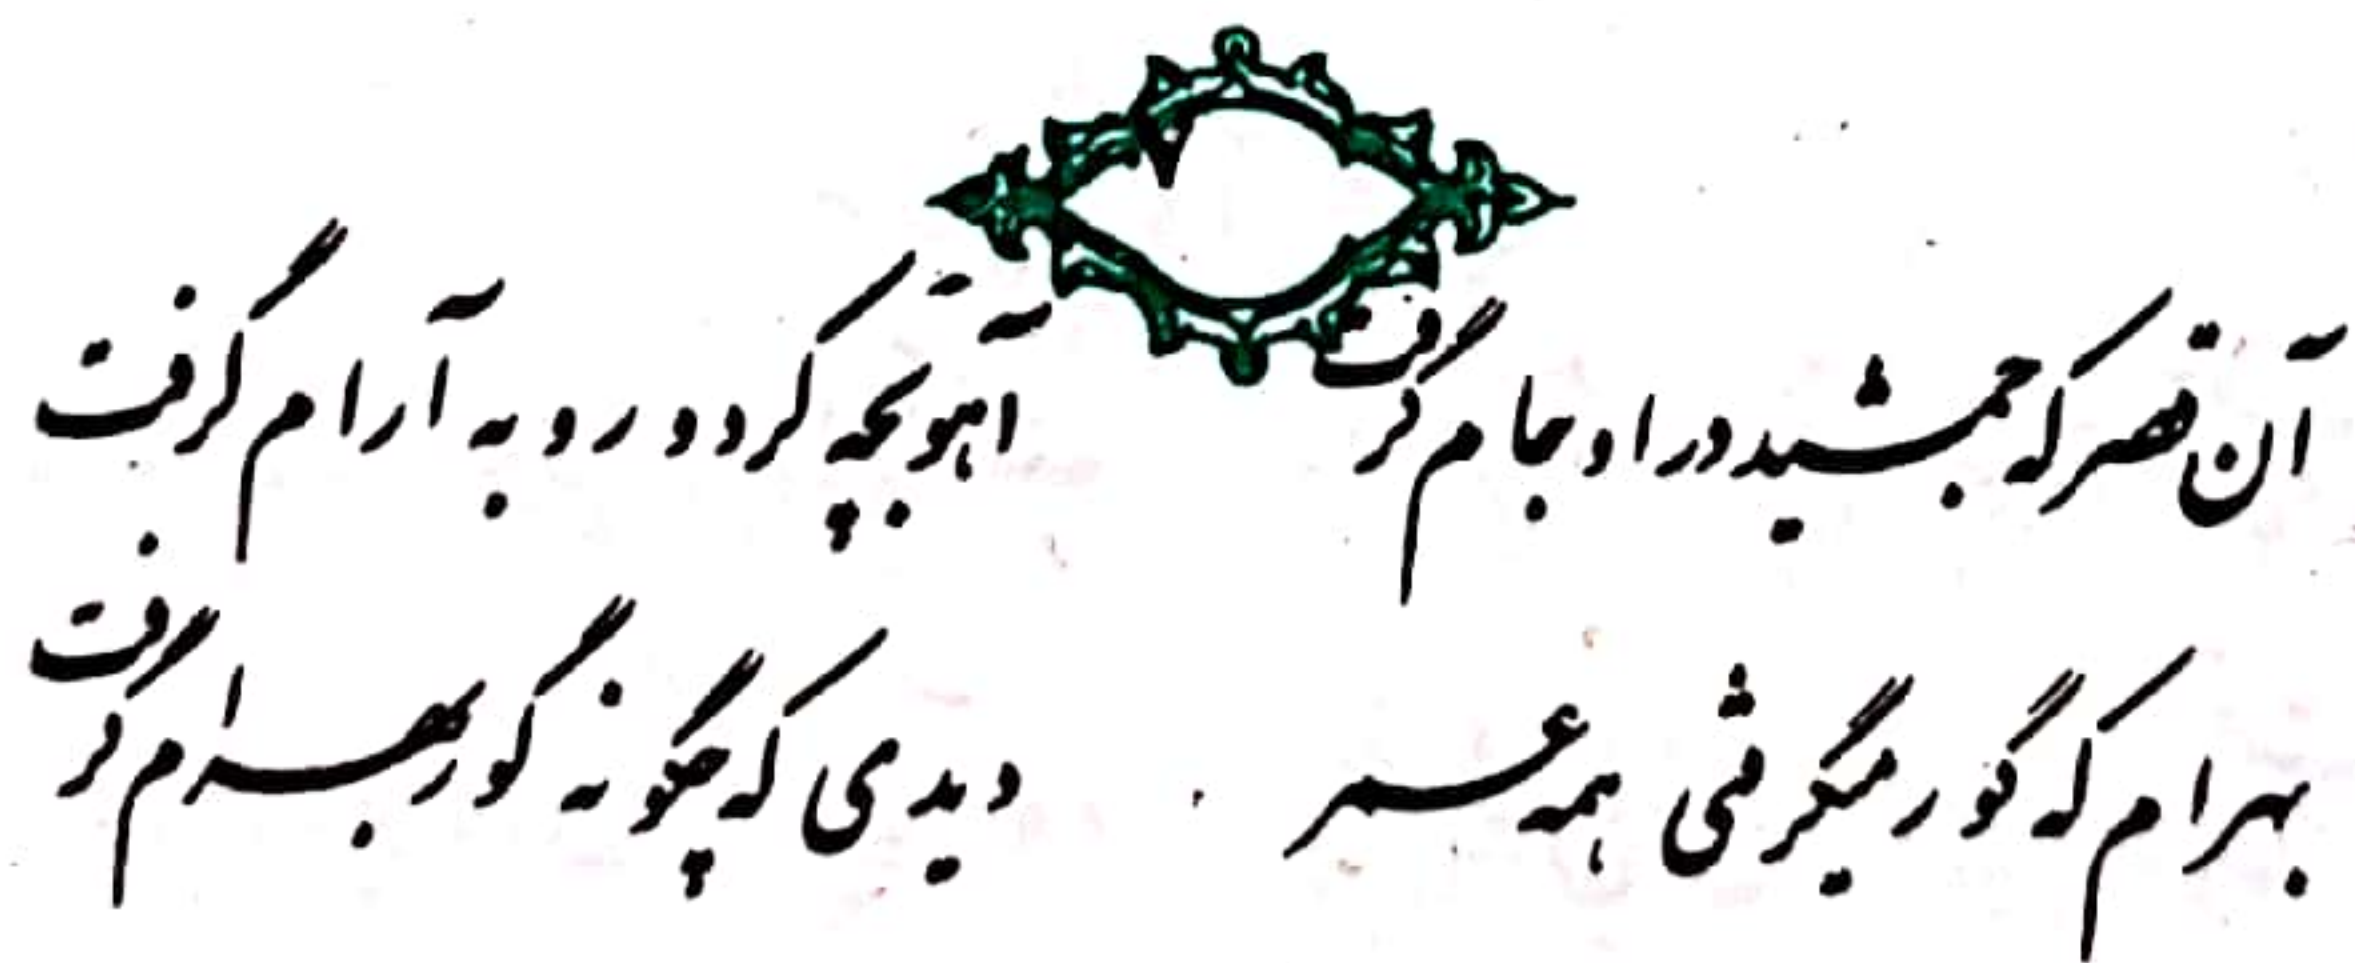 آن قصر که جمشید در او جام گرفت
آهو بچه کرد و رو به آرام گرفت
بهرام که گور میگرفتی همه عمر
دیدی که چگونه گور بهرام گرفت